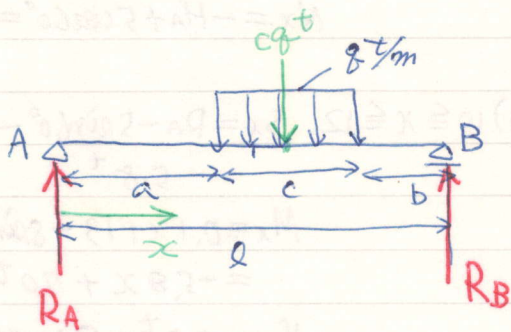 cq t
q t/m
A
B
a
c
b
x
l
RA
RB